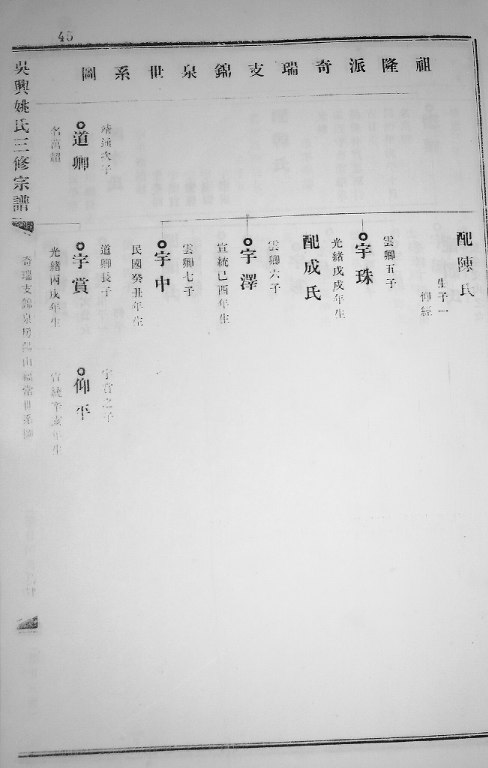 45
祖隆派奇瑞支錦泉世系圖
配陳氏
生子一
仰經
雲卿五子
宇珠
光緒戊戌年生
配成氏
雲卿六子
宇澤
宣統己酉年生
雲卿七子
宇中
民國癸丑年生
次子
道卿
名萬韶
道卿長子
宇賞
光緒丙戌年生
宇賞之子
仰平
宣統辛亥年生
吳興姚氏三修宗譜
奇瑞支錦泉房
世系